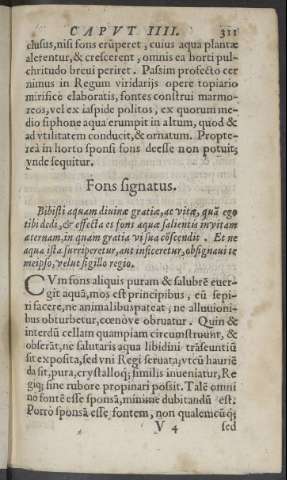 CAPVT IIII. 311
clusus, nisi fons erũperet, cuius aqua plantæ
alerentur, & crescerent, omnis ea horti pul-
chritudo breui periret. Passim profecto cer
nimus in Regum viridarijs opere topiario
mirificè elaboratis, fontes construi marmo-
reos, vel ex iaspide politos, ex quorum me-
dio siphone aqua erumpit in altum, quod &
ad vtilitatem conducit, & ornatum. Propte-
reà in horto sponsi fons deesse non potuit;
vnde sequitur.
Fons signatus.
Bibisti aquam diuinæ gratiæ, ac vitæ, quã ego
tibi dedi, & effecta es fons aquæ salientis in vitam
æternam, in quam gratia vi sua cõscendit. Et ne
aqua ista surriperetur, aut inficeretur, obsignaui te
meipso, velut sigillo regio.
CVm fons aliquis puram & salubrẽ euer-
git aquã, mos est principibus, eũ sepi-
ri facere, ne animalibus pateat; ne alluuioni-
bus obturbetur, cœnove obruatur. Quin &
interdũ cellam quampiam circumstruunt, &
obserãt, ne salutaris aqua libidini trãseuntiũ
sit exposita, sed vni Regi seruata, vt cũ haurie
da sit, pura, crystalloq; similis inueniatur, Re
giq; sine rubore propinari possit. Talẽ omni
no fontẽ esse sponsã, minime dubitandũ est.
Porrò sponsã esse fontem, non qualemcũq;
V 4 sed